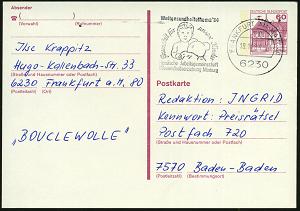 Absender
Weltgesundheitsthema '84
(Vorwahl) (Rufnummer)
Ilse Krappitz
Hugo-Kallenbach-Str. 33
(Straße und Hausnummer oder Postfach)
6230 Frankfurt a. M. 80
(Postleitzahl) (Ort)
6230
60
Postkarte
Redaktion: INGRID
Kennwort: Preisrätsel
Postfach 720
(Straße und Hausnummer oder Postfach)
"BOUCLEWOLLE"
7570 Baden-Baden
(Postleitzahl) (Bestimmungsort)